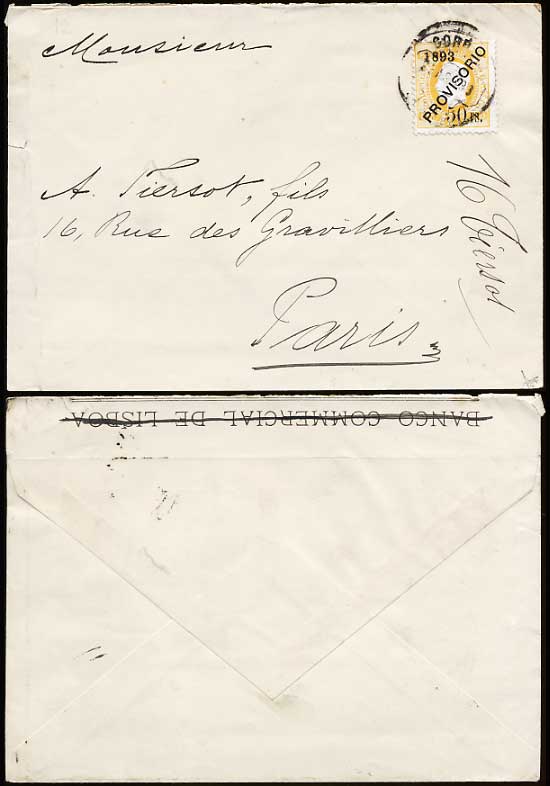 Monsieur
CORR
1893
PROVISORIO
50 rs.
A. Tiersot, fils
16, Rue des Gravilliers
Paris
16 Tiersot
BANCO COMMERCIAL DE LISBOA